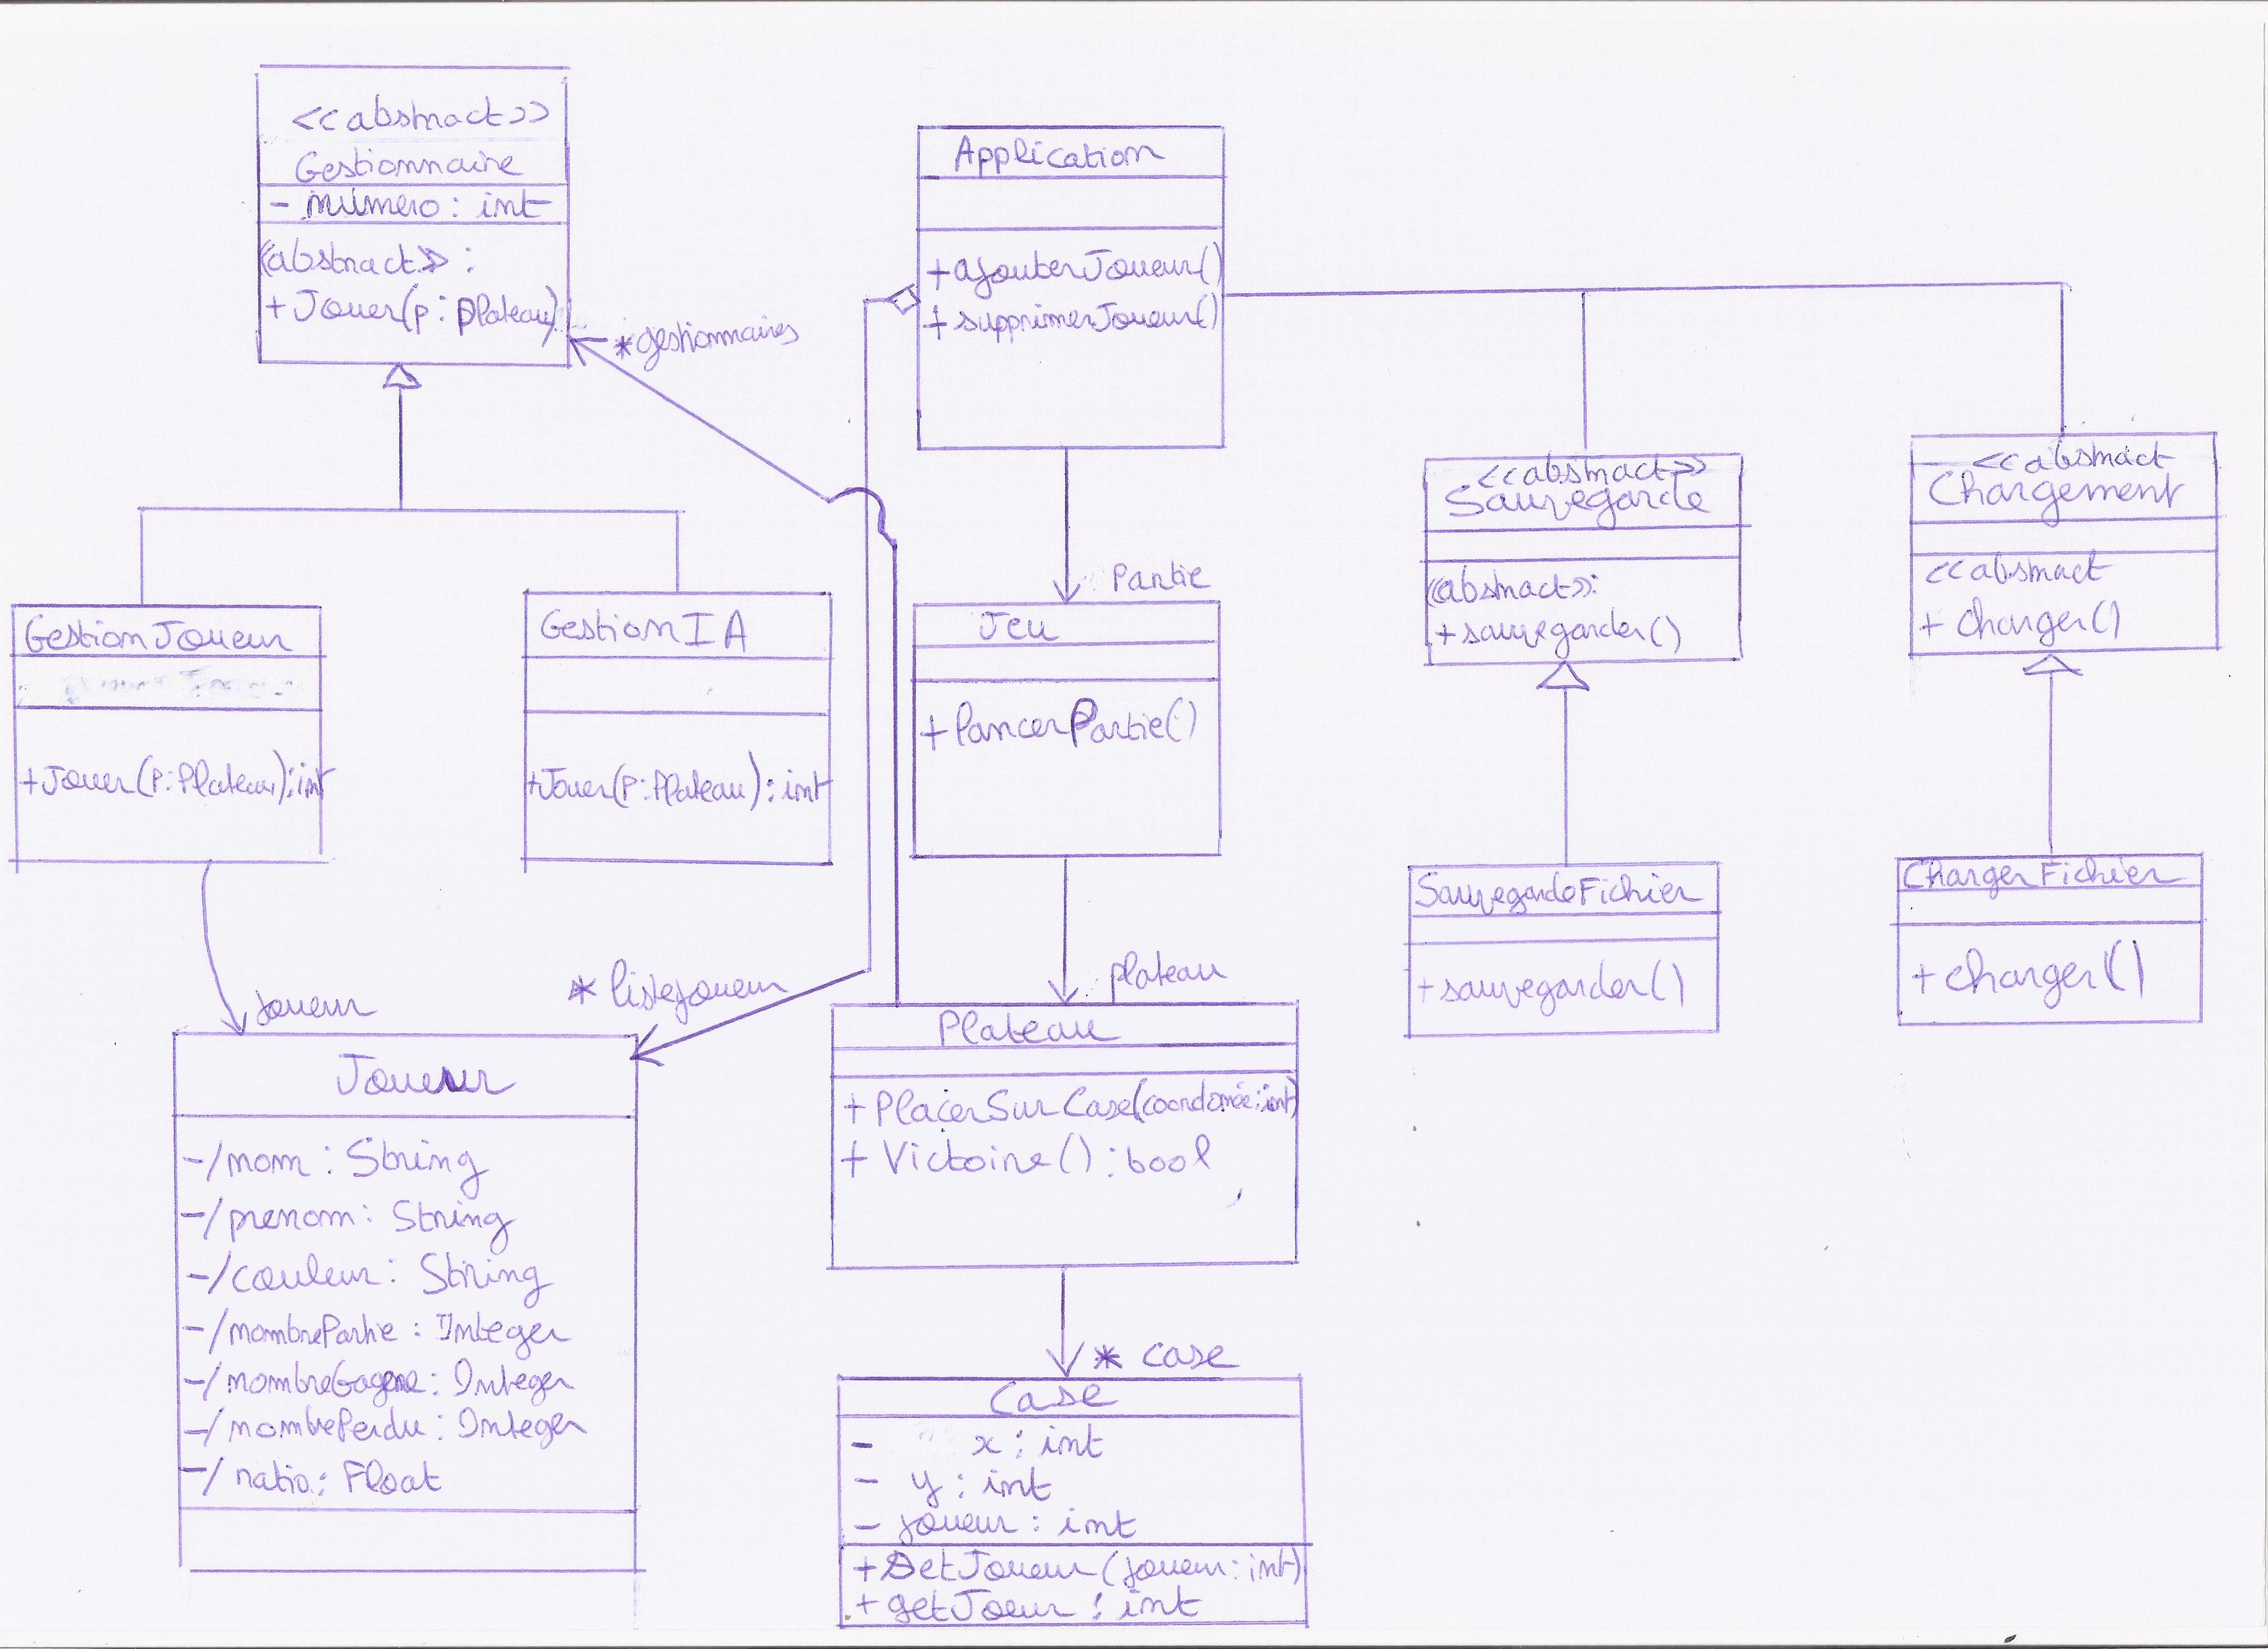 <<abstract>>
Gestionnaire
- numero : int
<<abstract>> :
+ Jouer(p : Plateau)
* gestionnaires
Application
+ ajouterJoueur()
+ supprimerJoueur()
<<abstract>>
Sauvegarde
<<abstract>>:
+ sauvegarder()
<<abstract
Chargement
<<abstract
+ charger()
GestionJoueur
+ Jouer(P : Plateau) : int
GestionIA
+ Jouer(P : Plateau) : int
Partie
Jeu
+ lancerPartie()
SauvegardeFichier
+ sauvegarder()
ChargerFichier
+ charger()
joueur
* listejoueur
plateau
Joueur
-/nom : String
-/prenom : String
-/couleur : String
-/nombrePartie : Integer
-/nombreGagene : Integer
-/nombrePerdu : Integer
-/ ratio : Float
Plateau
+ PlacerSurCase(coordonée : int)
+ Victoire() : bool
* case
Case
- x : int
- y : int
- joueur : int
+ SetJoueur (joueur : int)
+ getJoeur : int